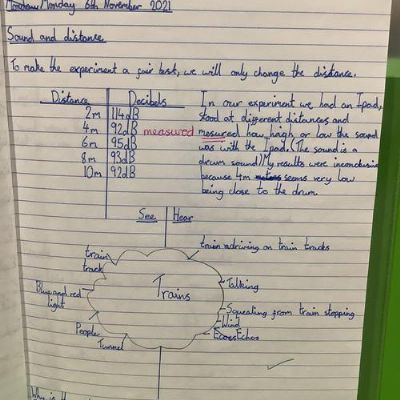 Monday 6th November 2021
Sound and distance
To make the experiment a fair test, we will only change the distance.
Distance Decibels
2m 114dB
4m 92dB
6m 95dB
8m 93dB
10m 92dB
In our experiment we had an Ipad,
stood at different distances and
measured
mesured how heigh or low the sound
was with the Ipad. (The sound is a
drum sound) My results were inconclusive
because 4m seems very low
being close to the drum.
See Hear
train
track
Blue and red
light
People
Tunnel
Trains
train on train tracks
Talking
Squeaking from train stopping
Wind
Echos